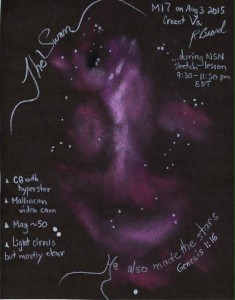 M17 on Aug 3 2015
Crozet Va.
...during NSN
sketch-lesson
9:30-11:30 pm
EDT
The Swan
▲ C8 with
hyperstar
▲ Mallincam
video cam
▲ Mag ~50
▲ Light cirrus
but mostly clear
He also made the stars
Genesis 1:16